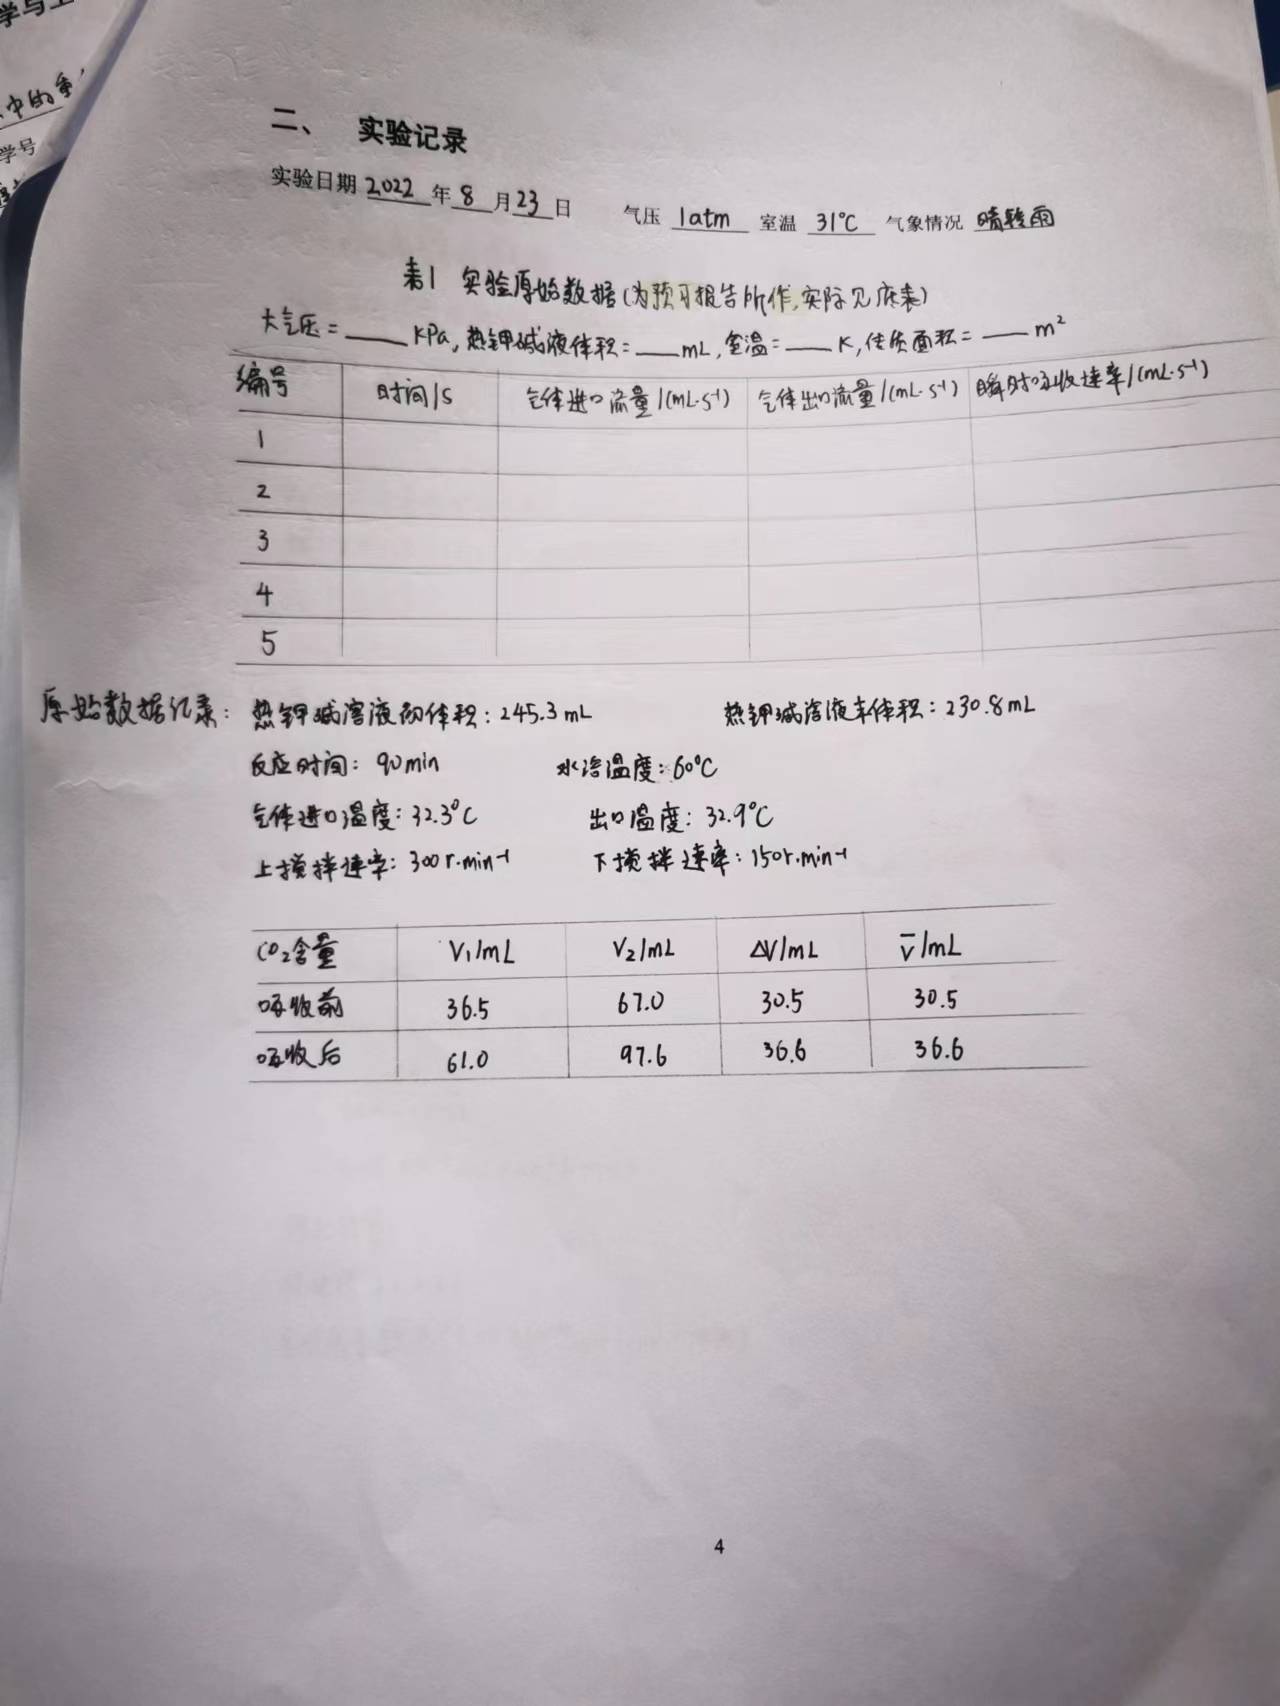 学与工
中的重
学号
二、 实验记录
实验日期 2022 年 8 月 23 日 气压 1atm 室温 31℃ 气象情况 晴转雨
表1 实验原始数据(为预习报告所作,实际见底表)
大气压=____KPa,热钾碱液体积=____mL,室温=____K,传质面积=____m²
编号 时间/s 气体进口流量/(mL·s⁻¹) 气体出口流量/(mL·s⁻¹) 瞬时吸收速率/(mL·s⁻¹)
1
2
3
4
5
原始数据记录: 热钾碱溶液初体积:245.3mL 热钾碱溶液末体积:230.8mL
反应时间: 90min 水浴温度:60℃
气体进口温度:32.3℃ 出口温度: 32.9℃
上搅拌速率: 300r·min⁻¹ 下搅拌速率:150r·min⁻¹
CO₂含量 V₁/mL V₂/mL ΔV/mL V̄/mL
吸收前 36.5 67.0 30.5 30.5
吸收后 61.0 97.6 36.6 36.6
4